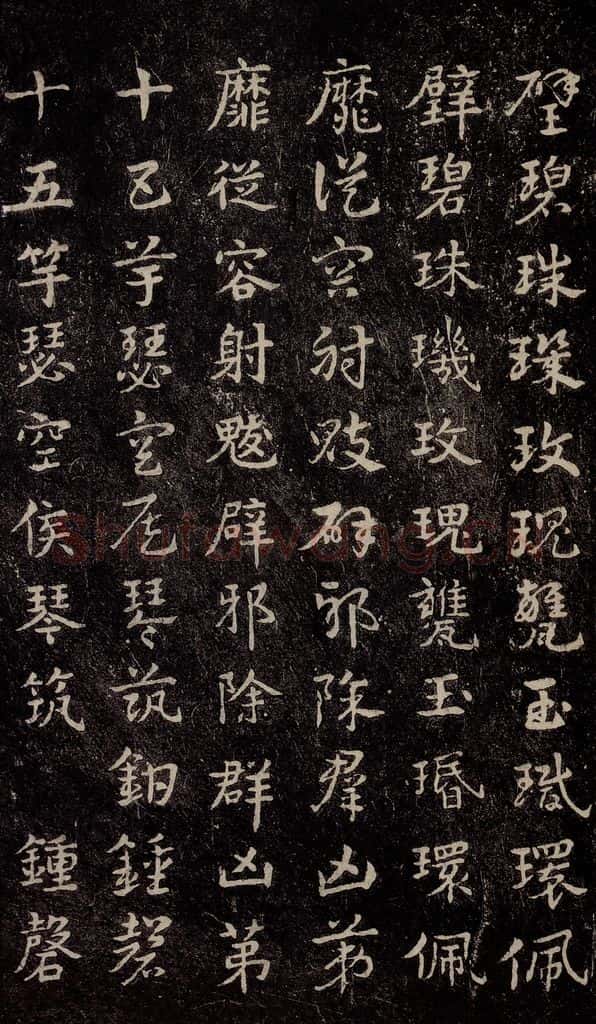 璧碧珠璣玫瑰甕玉環佩
璧碧珠璣玫瑰甕玉環佩
靡從容射魃辟邪除群凶第
靡從容射魃辟邪除群凶第
十五竽瑟空侯琴筑鍾磬
十五竽瑟空侯琴筑 鍾磬
Shufawang.cn